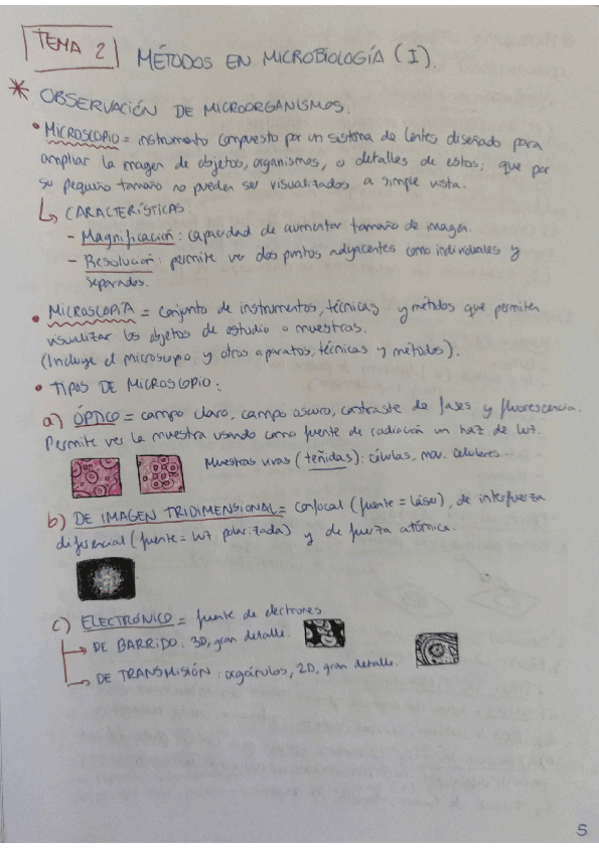 TEMA 2
MÉTODOS EN MICROBIOLOGÍA (I).
* OBSERVACIÓN DE MICROORGANISMOS:
• MICROSCOPIO = instrumento compuesto por un sistema de lentes diseñado para
ampliar la imagen de objetos, organismos, o detalles de estos; que por
su pequeño tamaño no pueden ser visualizados a simple vista.
↳ CARACTERÍSTICAS:
- Magnificación: capacidad de aumentar tamaño de imagen.
- Resolución: permite ver dos puntos adyacentes como individuales y
separados.
• MICROSCOPÍA = conjunto de instrumentos, técnicas y métodos que permiten
visualizar los objetos de estudio o muestras.
(Incluye el microscopio y otros aparatos, técnicas y métodos).
• TIPOS DE MICROSCOPIO:
a) ÓPTICO = campo claro, campo oscuro, contraste de fases y fluorescencia.
Permite ver la muestra usando como fuente de radiación un haz de luz.
Muestras vivas (teñidas): células, mov. celulares.
b) DE IMAGEN TRIDIMENSIONAL = confocal (fuente = láser), de interferenza
diferencial (fuente = luz polarizada) y de fuerza atómica.
c) ELECTRÓNICO = fuente de electrones.
→ DE BARRIDO: 3D, gran detalle.
→ DE TRANSMISIÓN: orgánulos, 2D, gran detalle.
5